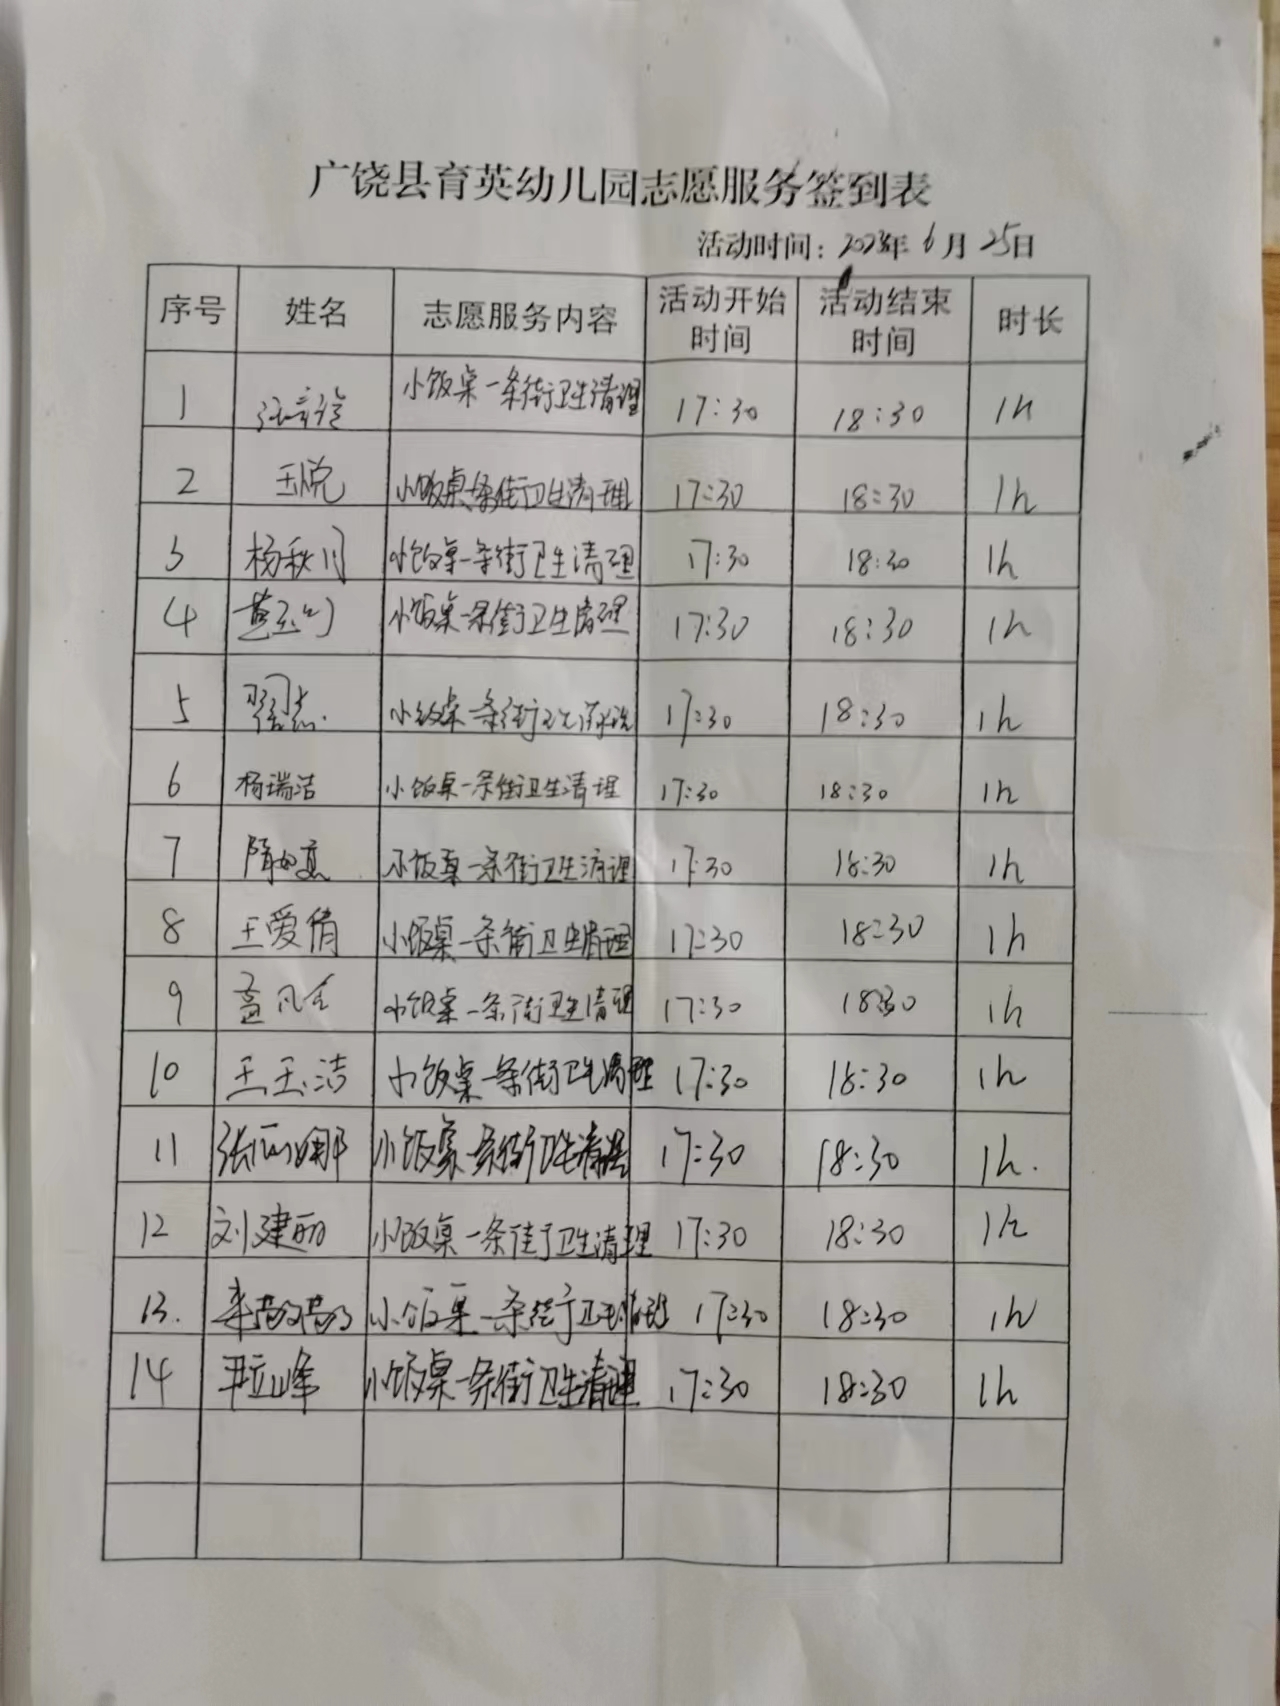 广饶县育英幼儿园志愿服务签到表
活动时间：2023年6月25日
序号 姓名 志愿服务内容 活动开始时间 活动结束时间 时长
1 小饭桌一条街卫生清理 17:30 18:30 1h
2 王悦 小饭桌一条街卫生清理 17:30 18:30 1h
3 杨秋月 小饭桌一条街卫生清理 17:30 18:30 1h
4 小饭桌一条街卫生清理 17:30 18:30 1h
5 小饭桌一条街 17:30 18:30 1h
6 杨瑞洁 小饭桌一条街卫生清理 17:30 18:30 1h
7 隋 小饭桌一条街卫生清理 17:30 18:30 1h
8 王爱倩 小饭桌一条街卫生清理 17:30 18:30 1h
9 小饭桌一条街卫生清理 17:30 18:30 1h
10 王玉洁 小饭桌一条街卫生清理 17:30 18:30 1h
11 张丽娜 小饭桌一条街卫生清理 17:30 18:30 1h.
12 刘建丽 小饭桌一条街卫生清理 17:30 18:30 1h
13. 小饭桌一条街卫生清理 17:30 18:30 1h
14 小饭桌一条街卫生清理 17:30 18:30 1h